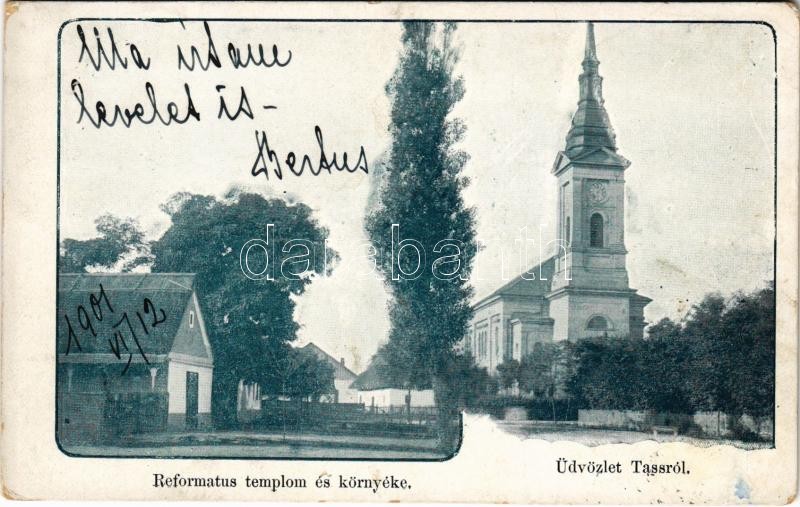 Ma írtam
levelet is-
Bertus
1901
VI/12
darabanth
Reformatus templom és környéke.
Üdvözlet Tassról.